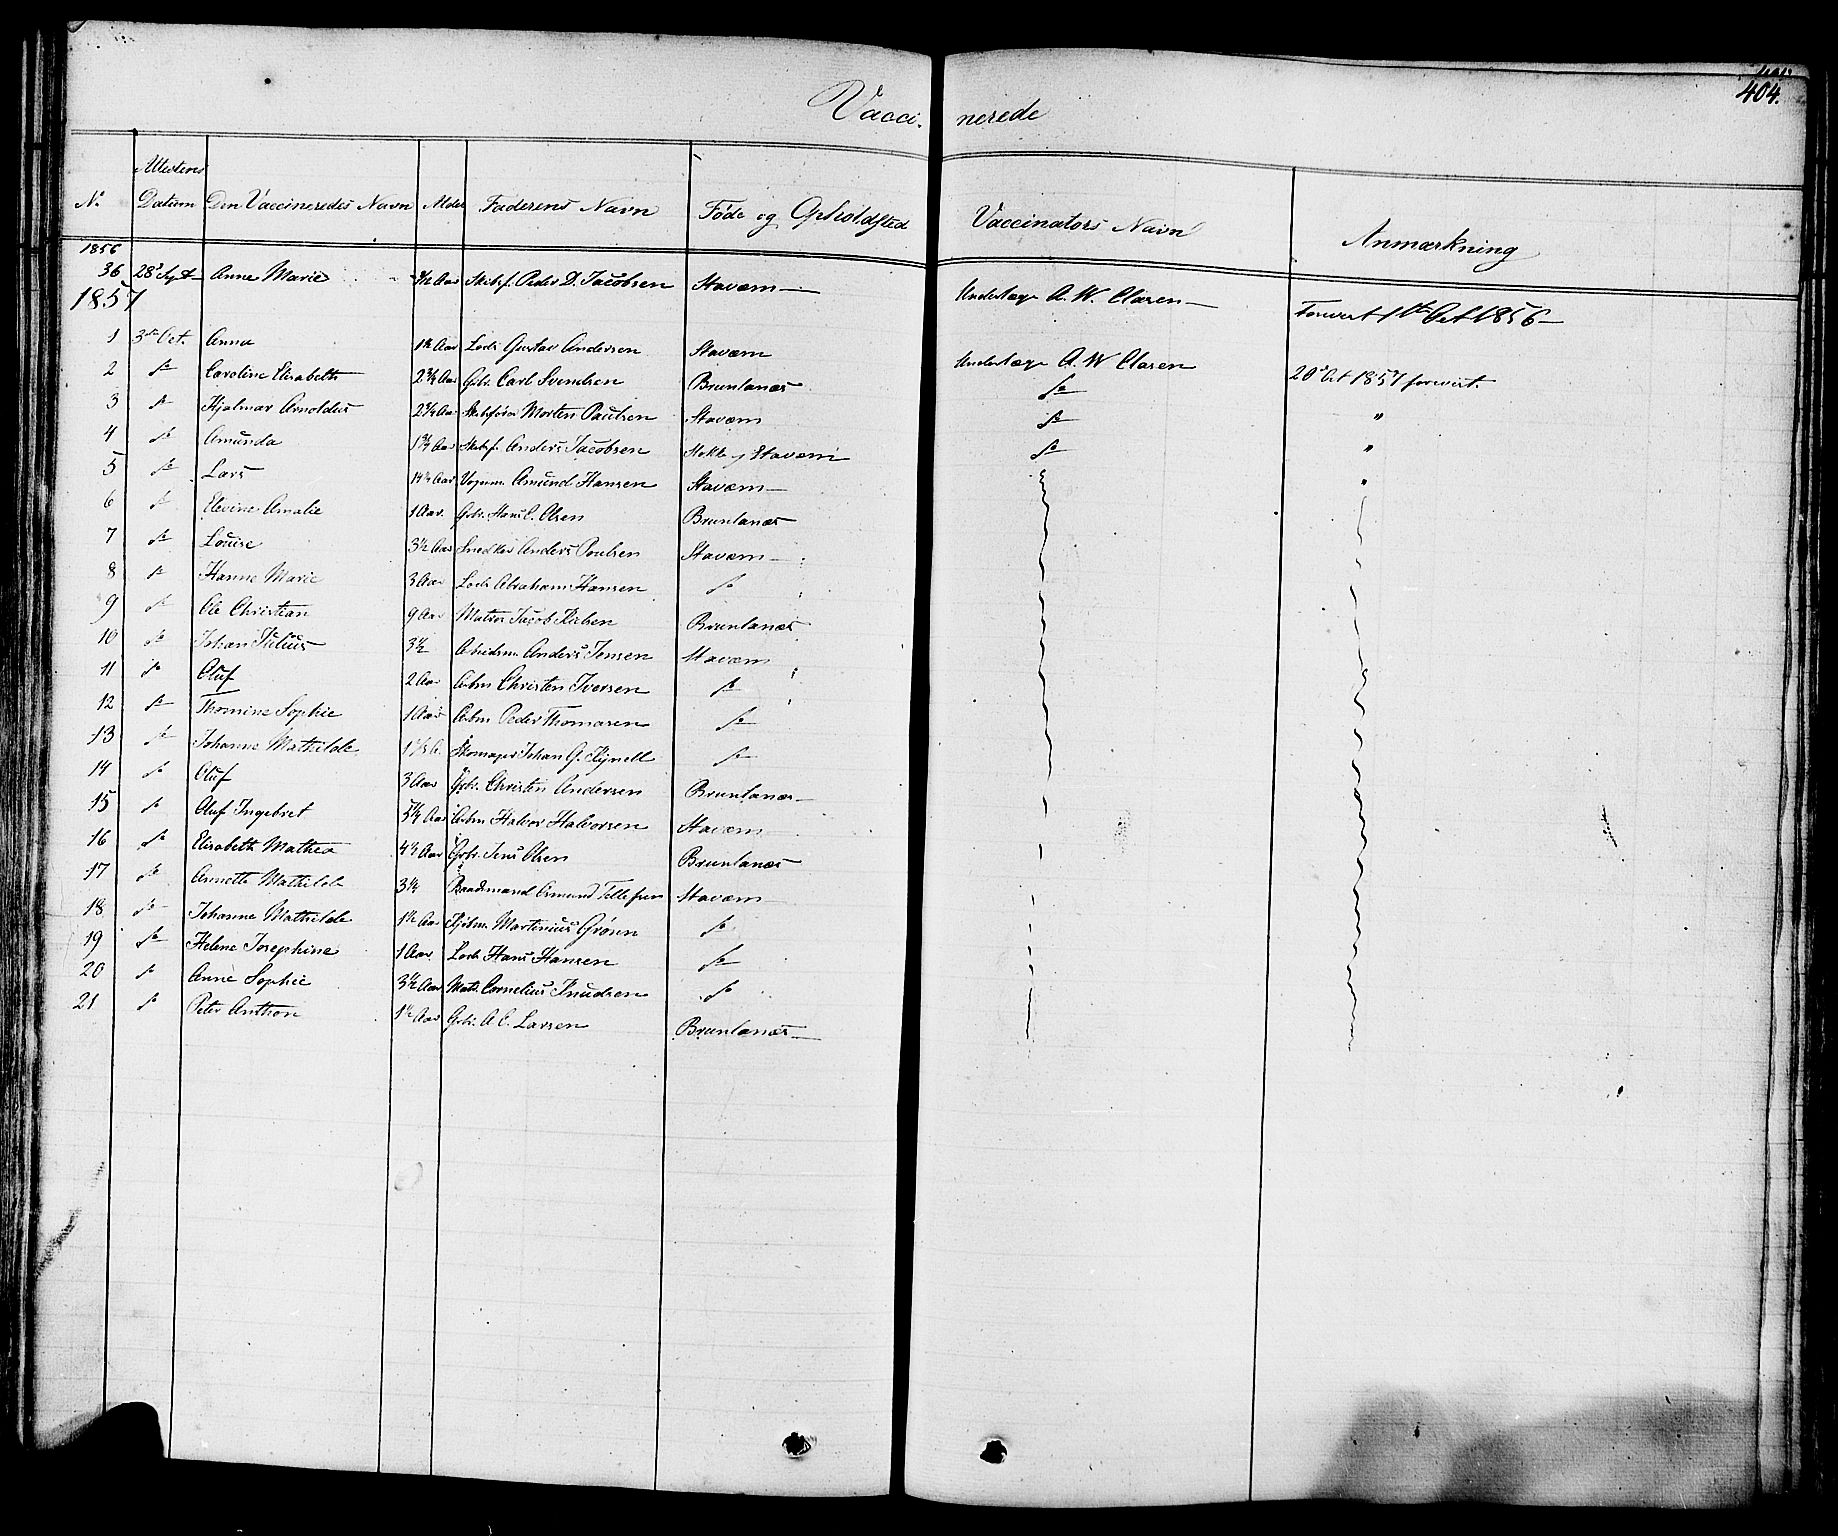 404.
Vacci- nerede
Attestens
No Datum Den Vaccineredes Navn Alder Faderens Navn Føde og Opholdsted Vaccinators Navn Anmærkning
1856
36 28 Sept Anne Marie Aar Skibsf. Peder D. Jacobsen Staværn Underlæge A. W. Clasen Forevist 1ste Oct 1856
1857
1 3die Oct. Anna 1½ Aar Lods Gustav Andersen Staværn Underlæge A. W Clasen 20 Oct 1857 forevist
2 do Caroline Elisabeth 2¾ Aar Gbr. Carl Svendsen Brunlanæs do
3 do Hjalmar Arnoldus Aar Skibsfører Morten Paulsen Staværn do "
4 do Amunda 1¾ Aar Skibsf. Anders Jacobsen Stokke og Staværn do "
5 do Lars Aar Amund Hansen Staværn "
6 do Elevine Amalie 1 Aar. Gbr. Hans C. Olsen Brunlanæs
7 do Louise 3½ Aar Snedker Anders Poulsen Staværn
8 do Hanne Marie 3 Aar Lods Abraham Hansen do
9 do Ole Christian 9 Aar Matros Jacob Brunlanæs
10 do Johan Julius 3½ Arbeidsm Anders Jensen Staværn
11 do Oluf 2 Aar Arbm Christen Iversen do
12 do Thomine Sophie 1 Aar Arbm Peder Thomasen do
13 do Johanne Mathilde Skomager Johan G. do
14 do Oluf 3 Aar Gbr. Christen Andersen Brunlanæs
15 do Oluf Ingebret Aar Arbm Halvor Halvorsen Staværn
16 do Elisabeth Mathea 4½ Aar Gbr. Jens Olsen Brunlanæs
17 do Annette Mathilde 3½ Baadsmand Tellefsen Staværn
18 do Johanne Mathilde 1½ Aar Martinius Grønn do
19 do Helene Josephine 1 Aar Lods Hans Hansen do
20 do Anne Sophie 3½ Aar Matr. Cornelius Knudsen do
21 do Peter Anthon 1½ Aar Gbr. A C. Larsen Brunlanæs